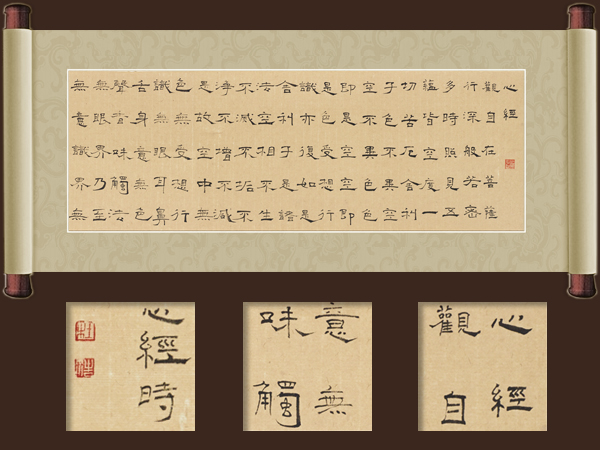 心經
觀自在菩薩
行深般若密
多時照見五
蘊皆空度一
切苦厄舍利
子色不異空
空不異色色
即是空空即
是色受想行
識亦復如是
舍利子是諸
法空相不生
不滅不垢不
淨不增不減
是故空中無
色無受想行
識無眼耳鼻
舌身意無色
聲香味觸法
無眼界乃至
無意識界無
心經時
意無
味觸
心經
觀自